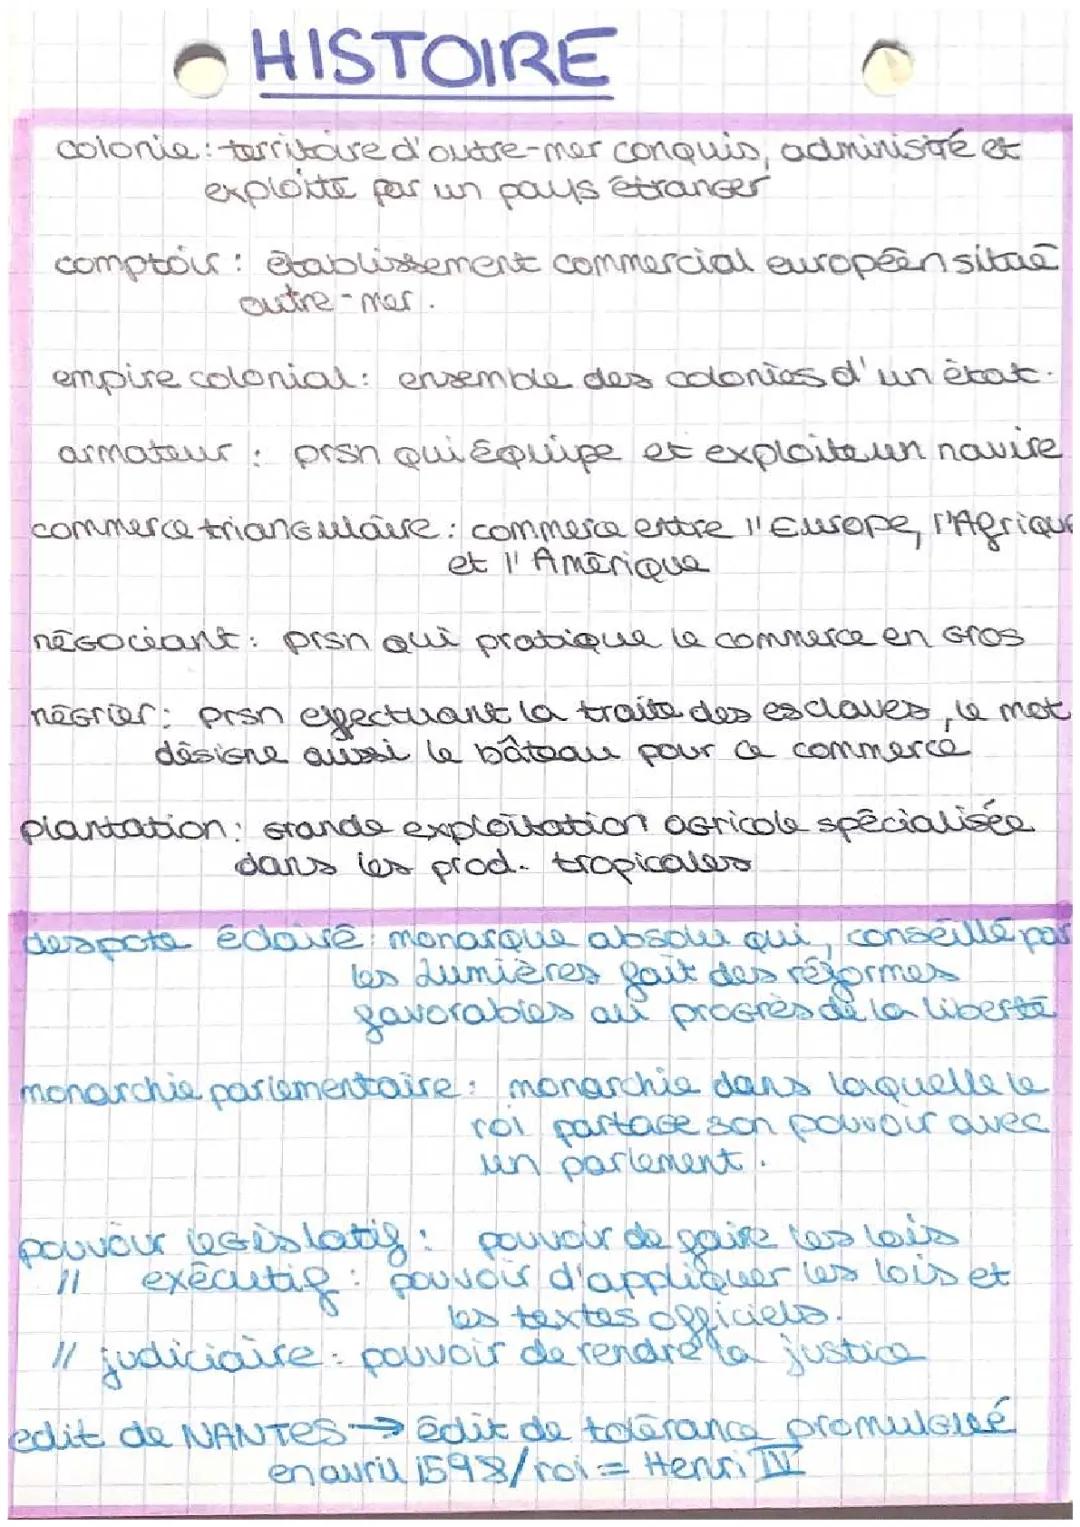 HISTOIRE
colonie : territoire d'outre-mer conquis, administré et
exploité par un pays étranger
comptoir : établissement commercial européen situé
outre-mer.
empire colonial : ensemble des colonies d'un état.
armateur : prsn qui équipe et exploite un navire
commerce triangulaire : commerce entre l'Europe, l'Afrique
et l'Amérique
négociant : prsn qui pratique le commerce en gros
négrier : prsn effectuant la traite des esclaves, le mot
désigne aussi le bâteau pour ce commerce
plantation : grande exploitation agricole spécialisée
dans les prod. tropicales
despote éclairé : monarque absolu qui, conseillé par
les Lumières fait des réformes
favorables au progrès de la liberté
monarchie parlementaire : monarchie dans laquelle le
roi partage son pouvoir avec
un parlement.
pouvoir législatif : pouvoir de faire les lois
// exécutif : pouvoir d'appliquer les lois et
les textes officiels.
// judiciaire : pouvoir de rendre la justice
edit de NANTES → édit de tolérance promulgué
en avril 1598/roi = Henri IV